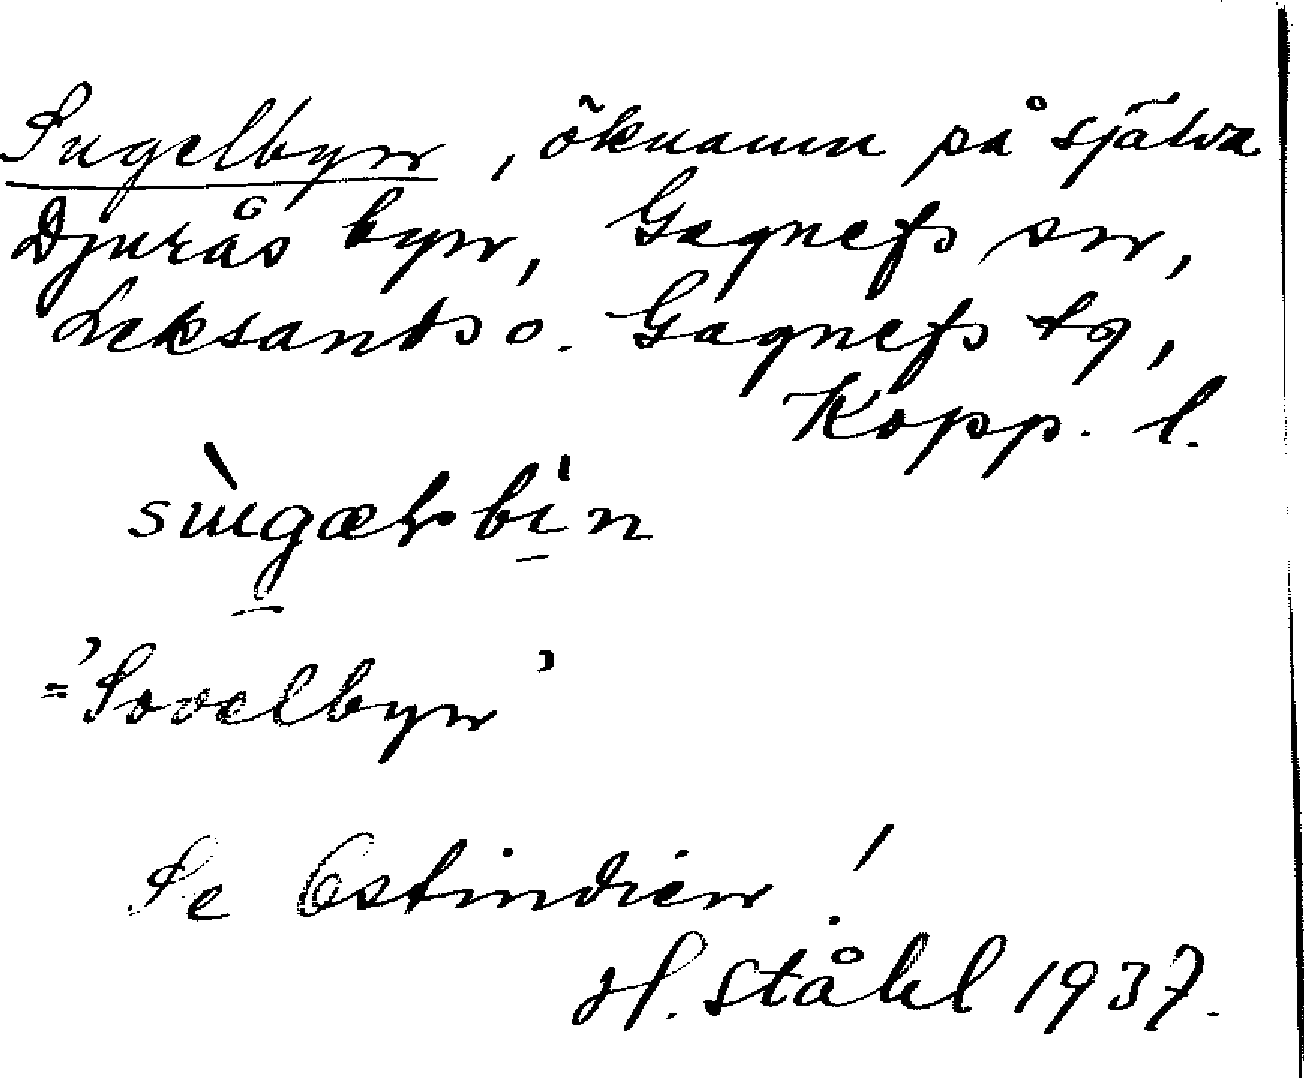 Sugelbyn, öknamn på själva
Djurås byn, Gagnefs sn,
Leksands o. Gagnefs tg,
Kopp. l.
='Sovelbyn'
Se Ostindien!
H. Ståhl 1937.